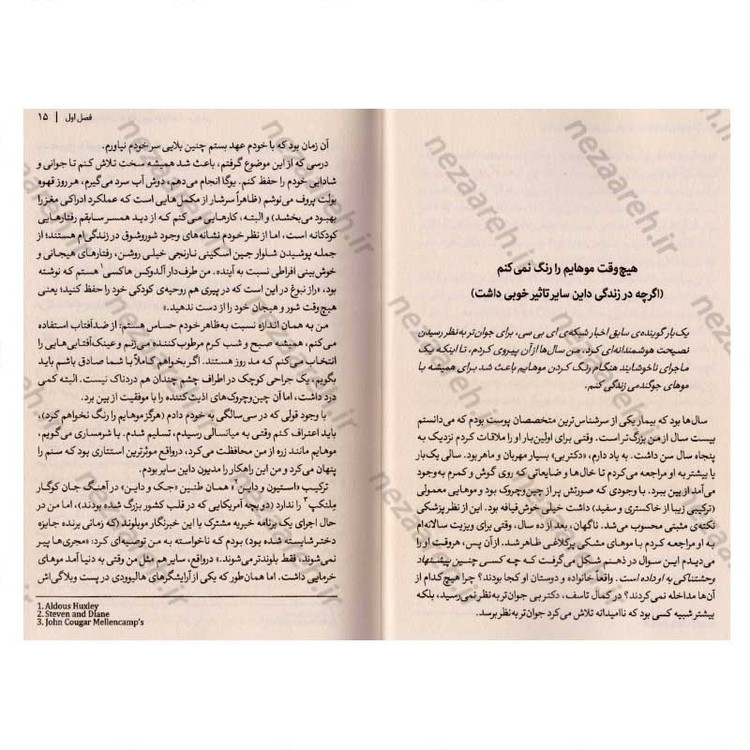 هیچ‌وقت موهایم را رنگ نمی‌کنم
(اگرچه در زندگی داین سایر تاثیر خوبی داشت)
یک‌بار گوینده‌ی سابق اخبار شبکه‌ی ای بی سی، برای جوان‌تر به نظر رسیدن
نصیحت هوشمندانه‌ای کرد، من سال‌ها از آن پیروی کردم، تا اینکه یک
ماجرای ناخوشایند هنگام رنگ کردن موهایم باعث شد برای همیشه با
موهای جوگندمی زندگی کنم.
سال‌ها بود که بیمار یکی از سرشناس‌ترین متخصصان پوست بودم که می‌دانستم
بیست سال از من بزرگ‌تر است. وقتی برای اولین‌بار او را ملاقات کردم نزدیک به
پنجاه سال سن داشت. به یاد دارم، «دکتر بی» بسیار مهربان و ماهر بود. سالی یک‌بار
یا بیشتر به او مراجعه می‌کردم تا خال‌ها و ضایعاتی که روی گوش و کمرم به وجود
می‌آمد از بین ببرد. با وجودی که صورتش پر از چین‌وچروک بود و موهایی معمولی
(ترکیبی زیبا از خاکستری و سفید) داشت خیلی خوش‌قیافه بود. از نظر پزشکی
نکته‌ی مثبتی محسوب می‌شد. ناگهان، بعد از ده سال، وقتی برای ویزیت سالانه‌ام
به او مراجعه کردم با موهای مشکی پرکلاغی ظاهر شد. از آن پس، هر وقت او را
می‌دیدم این سوال در ذهنم شکل می‌گرفت که چه کسی چنین پیشنهاد
وحشتناکی به او داده است. واقعاً خانواده و دوستان او کجا بودند؟ چرا هیچ‌کدام از
آن‌ها مداخله نمی‌کردند؟ در کمال تاسف، دکتر بی جوان‌تر به نظر نمی‌رسید، بلکه
بیشتر شبیه کسی بود که ناامیدانه تلاش می‌کرد جوان‌تر به نظر برسد.
فصل اول | ۱۵
آن زمان بود که با خودم عهد بستم چنین بلایی سر خودم نیاورم.
درسی که از این موضوع گرفتم، باعث شد همیشه سخت تلاش کنم تا جوانی و
شادابی خودم را حفظ کنم. یوگا انجام می‌دهم، دوش آب سرد می‌گیرم، هر روز قهوه
بولت پروف می‌نوشم (ظاهراً سرشار از مکمل‌هایی است که عملکرد ادراکی مغز را
بهبود می‌بخشد) و البته، کارهایی می‌کنم که از دید همسر سابقم رفتارهایی
کودکانه است، اما از نظر خودم نشانه‌های وجود شوروشوق در زندگی‌ام هستند؛ از
جمله پوشیدن شلوار جین اسکینی نارنجی خیلی روشن، رفتارهای هیجانی و
خوش‌بینی افراطی نسبت به آینده. من طرف‌دار آلدوکس هاکسی۱ هستم که نوشته
بود، «راز نبوغ در این است که در پیری هم روحیه‌ی کودکی خود را حفظ کنید؛ یعنی
هیچ‌وقت شور و هیجان خود را از دست ندهید.»
من به همان اندازه نسبت به ظاهر خودم حساس هستم: از ضدآفتاب استفاده
می‌کنم، همیشه صبح و شب کرم مرطوب‌کننده می‌زنم و عینک‌آفتابی‌هایی را
انتخاب می‌کنم که مد روز هستند. اگر بخواهم کاملاً با شما صادق باشم باید
بگویم، یک جراحی کوچک در اطراف چشم چندان هم دردناک نیست. البته کمی
درد داشت، اما آن چین‌وچروک‌های اذیت‌کننده را با موفقیت از بین برد.
با وجود قولی که در سی‌سالگی به خودم دادم (هرگز موهایم را رنگ نخواهم کرد)،
باید اعتراف کنم وقتی به میانسالی رسیدم، تسلیم شدم. با شرمساری می‌گویم،
موهایم مانند زره از من محافظت می‌کرد، درواقع موثرترین استتاری بود که سنم را
پنهان می‌کرد و من این راهکار را مدیون داین سایر بودم.
ترکیب «استیون و داین»۲ همان طنین «جک و داین» در آهنگ جان کوگار
ملنکپ۳ را ندارد (دو بچه آمریکایی که در قلب کشور بزرگ شده بودند)، اما من در
حال اجرای یک برنامه خیریه مشترک با این خبرنگار موبلوند (که زمانی برنده جایزه
دختر شایسته شده بود) بودم که ناخواسته به من توصیه‌ای کرد: «مجری‌ها پیر
نمی‌شوند، فقط بلوندتر می‌شوند.» درواقع، سایر هم مثل من وقتی به دنیا آمد موهای
خرمایی داشت. اما همان‌طور که یکی از آرایشگرهای هالیوودی در پست وبلاگی‌اش
1. Aldous Huxley
2. Steven and Diane
3. John Cougar Mellencamp's
nezaareh.ir